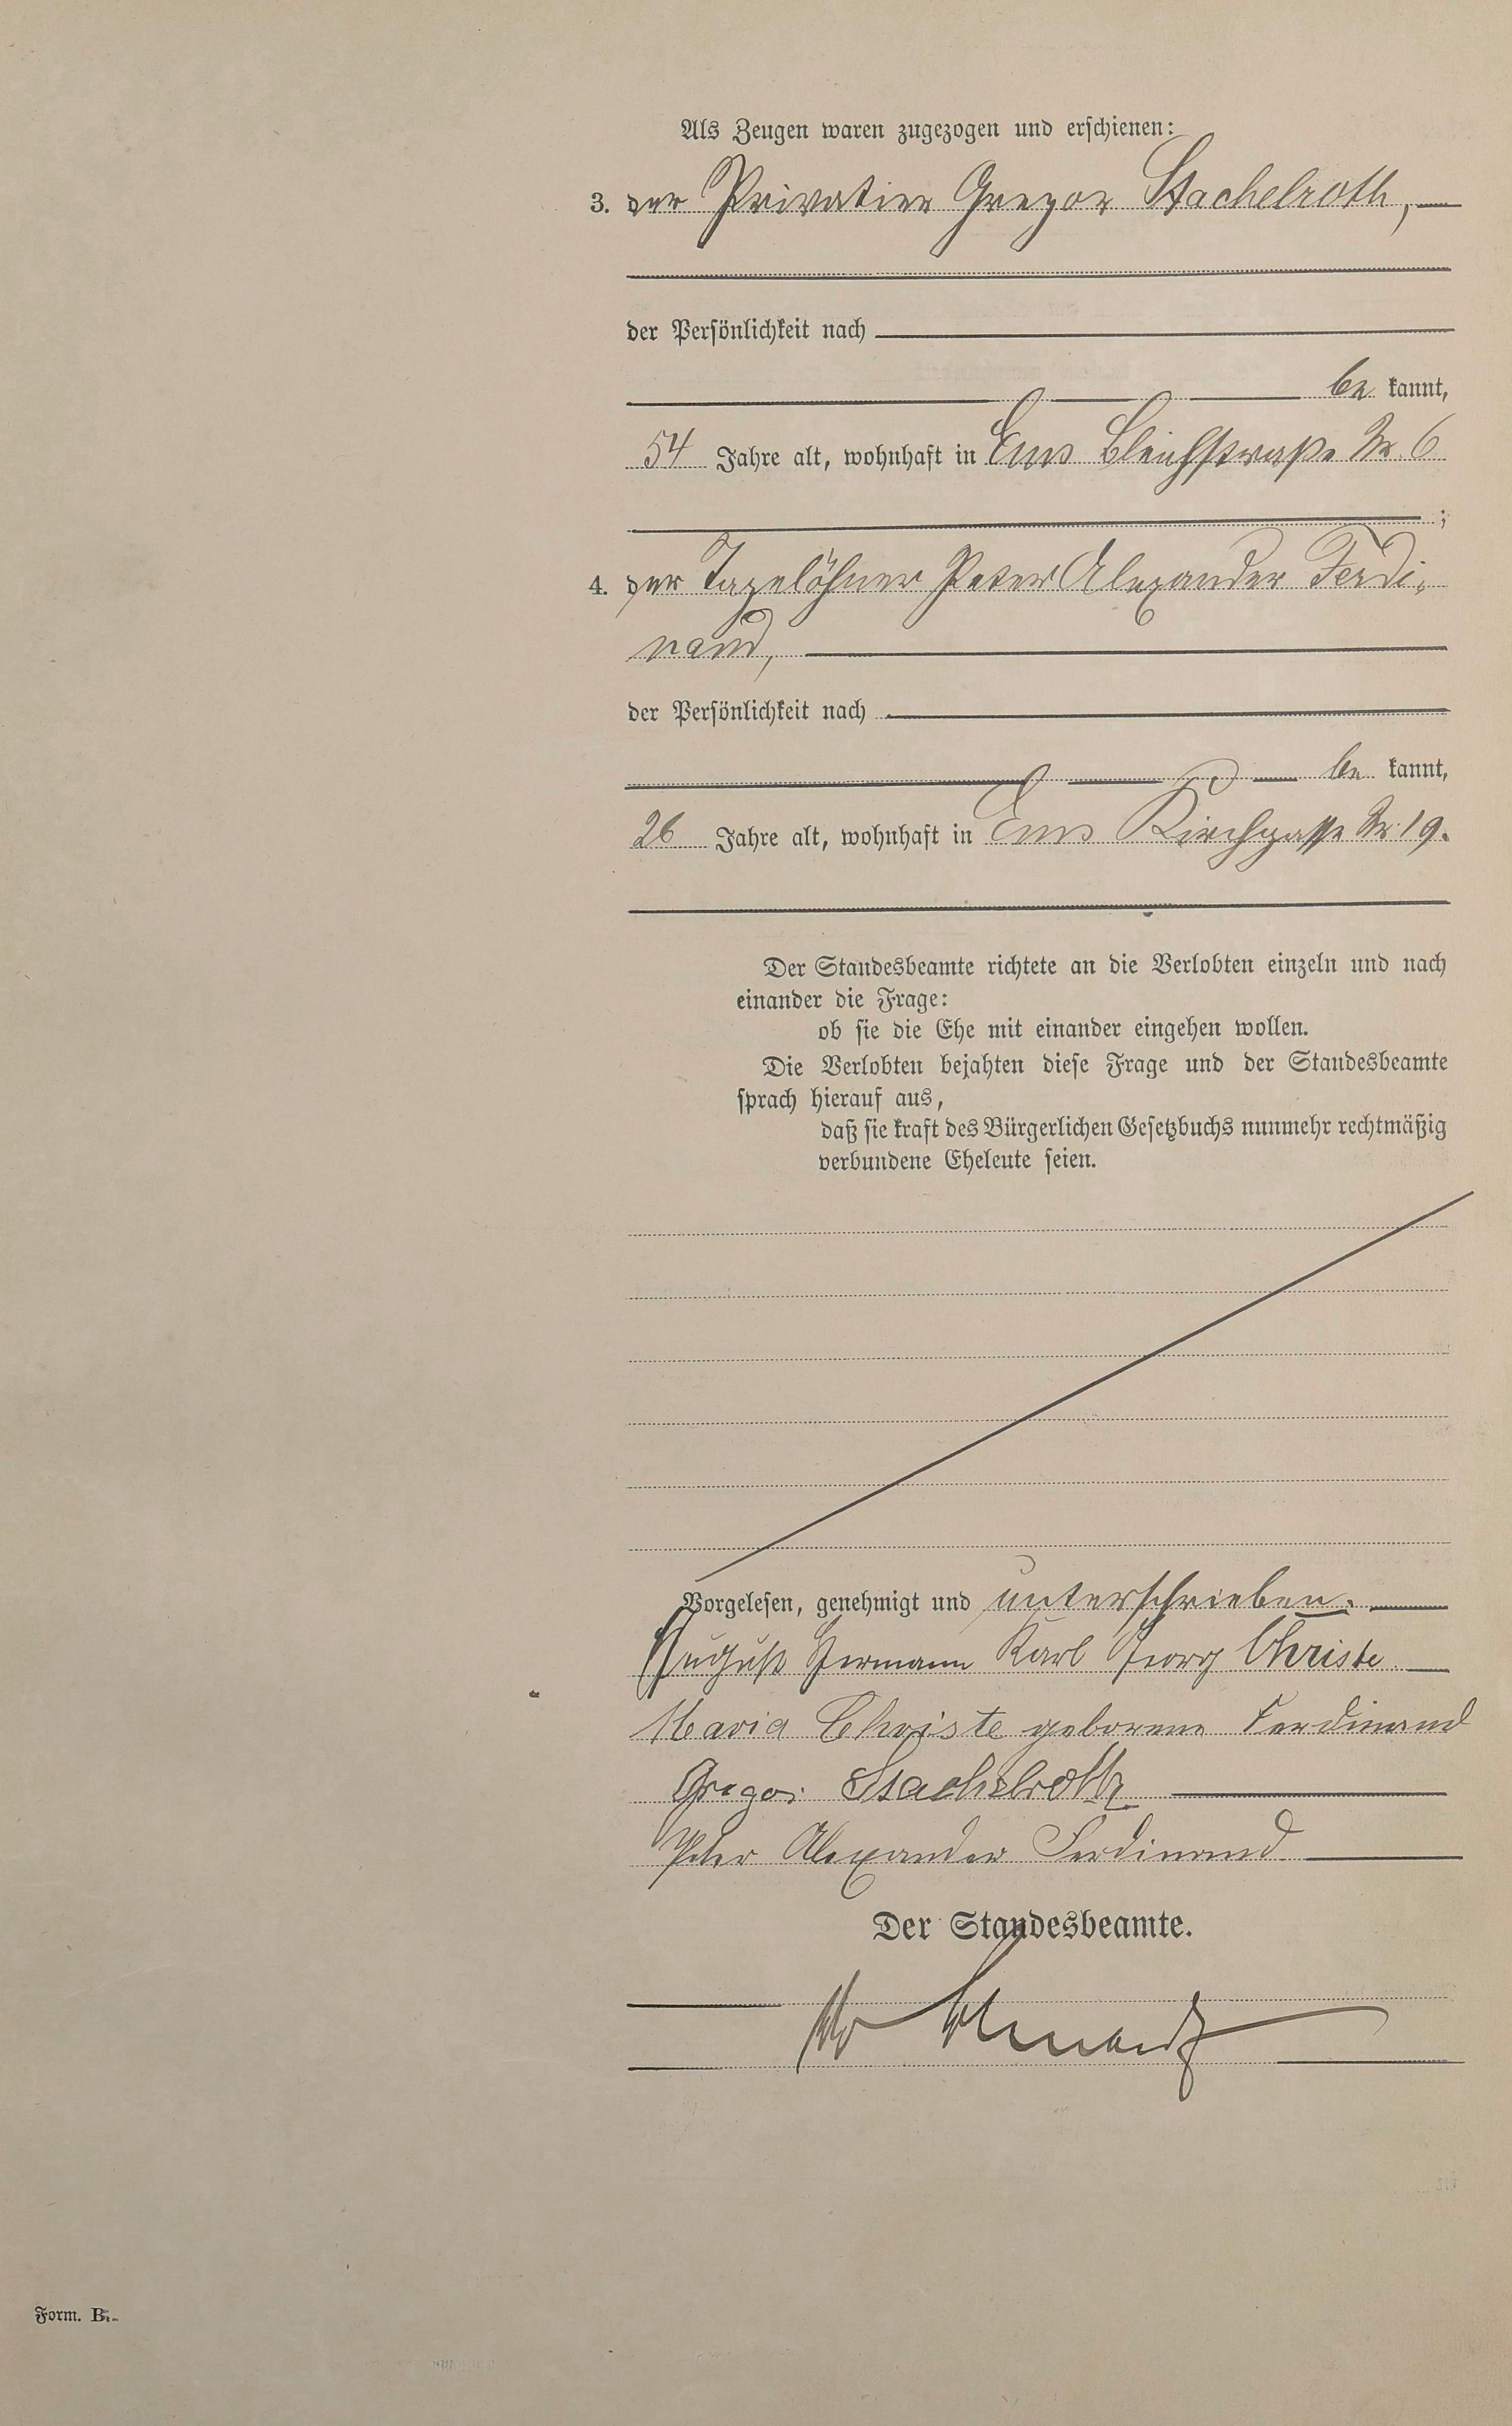 Als Zeugen waren zugezogen und erschienen:
3. der Privatier Gregor Stachelroth,
der Persönlichkeit nach
be kannt,
54 Jahre alt, wohnhaft in Ems Bleichstraße Nr. 6
;
4. der Tagelöhner Peter Alexander Ferdi-
nand,
der Persönlichkeit nach
be kannt,
26 Jahre alt, wohnhaft in Ems Kirchgasse Nr. 19.
Der Standesbeamte richtete an die Verlobten einzeln und nach
einander die Frage:
ob sie die Ehe mit einander eingehen wollen.
Die Verlobten bejahten diese Frage und der Standesbeamte
sprach hierauf aus,
daß sie kraft des Bürgerlichen Gesetzbuchs nunmehr rechtmäßig
verbundene Eheleute seien.
Vorgelesen, genehmigt und unterschrieben.
August Hermann Karl Georg Christe
Maria Christe geborene Ferdinand
Gregor Stachelroth
Peter Alexander Ferdinand
Der Standesbeamte.
Form. B.